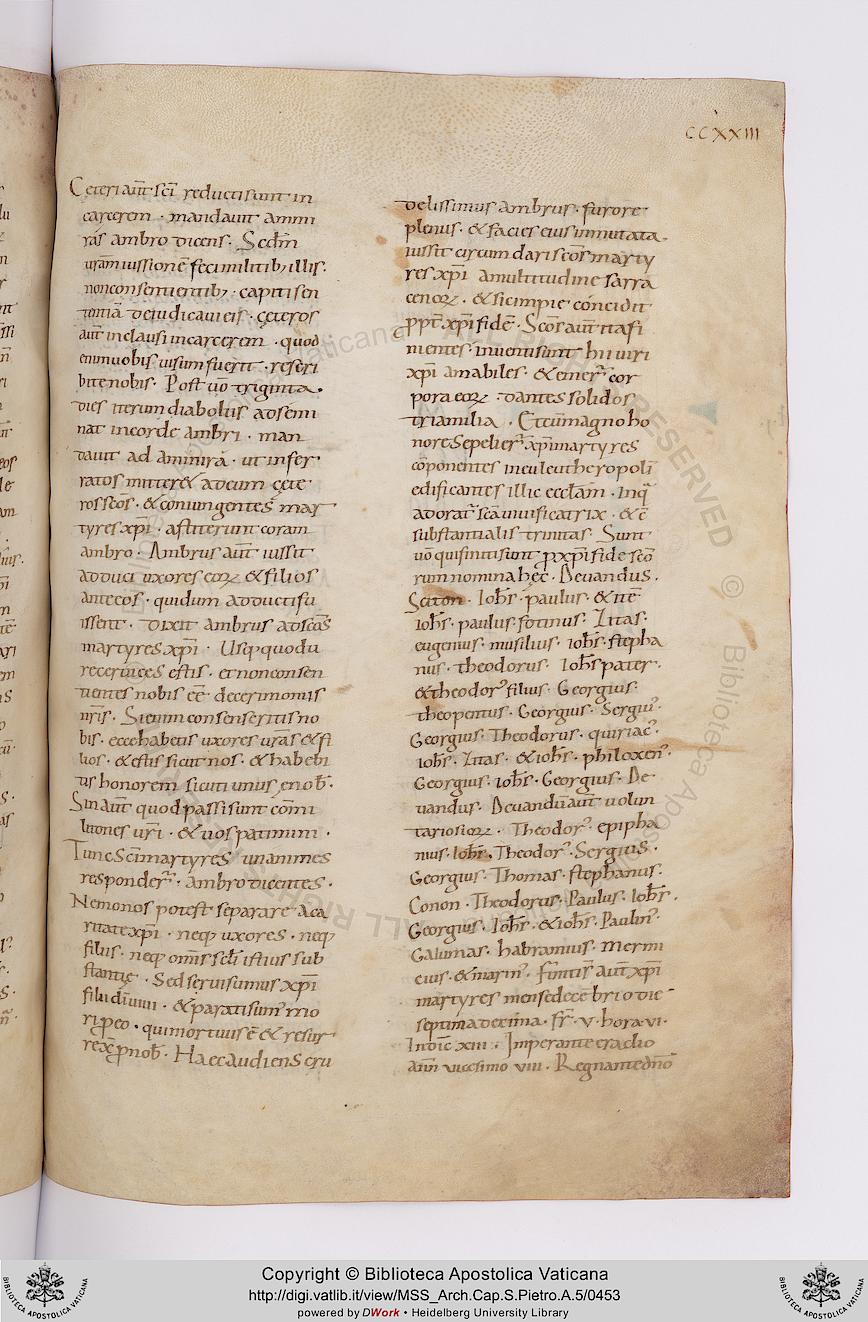 CCXXIII
Ceteri aut̄ sc̄i reducti sunt in
carcerem · mandauit ammi
ras ambro dicens · Secdm̄
ur̄am iussionē feci militib; illis ·
non consentientib; · capiti sen
tentiā deiudicaui eis · ceteros
aut̄ inclausi in carcerem · quod
enim uobis uisum fuerit · rescri
bite nobis · Post uō triginta ·
dies iterum diabolus adsemi
nat in corde ambri · man
dauit ad ammirā · ut infer
ratos mitter& adeum cęte
ros sc̄os · & coniungentes mar
tyres xp̄i · astiterunt coram
ambro · Ambrus aut̄ iussit
adduci uxores eoꝝ & filios
ante eos · qui dum adducti fu
issent · dixit ambrus ad sc̄os
martyres xp̄i · Usq; quo du
re ceruices estis · et non consen
tientes nobis eē decerimoniis
nr̄is · Si enim consenseritis no
bis · ecce habetis uxores ur̄as & fi
lios · & estis sicut nos · & habebi
tis honorem sicuti unus ex nob̄ ·
Sin aut̄ quod passi sunt cōmi
litones ur̄i · & uos patimini ·
Tunc Sc̄i martyres unanimes
responder̄ · ambro dicentes ·
Nemo nos potest separare a ca
ritate xp̄i · neq; uxores · neq;
filiis · neq; om̄is sc̄li istius sub
stantię · Sed seruisumus xp̄i
filii dī uiui · & parati sum' mo
ri ꝓ eo · qui mortuus ē & resur
rex̄ ꝓ nob̄ · Haec audiens cru
delissimus ambrus · furore
plenus · & facies eius inmutata ·
iussit circumdari sc̄os marty
res xp̄i a multitudine sarra
cenoꝝ · & sic impie concidit
ꝓpt̄ xp̄i fidē · Sc̄os aut̄ ita fi
nientes · inuenti sunt hii uiri
xp̄i amabiles · & emer̄ cor
pora eoꝝ · dantes solidos
tria milia · Et cum magno ho
nore Sepelier̄ xp̄i martyres
cōponentes in euleutheropolī
edificantes illic eccl̄am · In q̄
adorat̄ sc̄a uiuificatrix · & cē
substantialis trinitas · Sunt
uō qui finiti sunt ꝓ xp̄i fide sc̄o
rum nomina hęc · Deuandus ·
Sciton · Ioh̄s · paulus · & itē
ioh̄s · paulus · fotinus · Zitas ·
eugenius · musilius · ioh̄s · stepha
nus · theodorus · Ioh̄s pater ·
& theodor' filius · Georgius ·
theopentus · Georgius · Sergiu' ·
Georgius · Theodorus · quiriac' ·
ioh̄s · Zitas · & ioh̄s · philoxen' ·
Georgius · ioh̄s · Georgius · De
uandus · Deuandū aut̄ uolun
tariosioꝝ · Theodor' · epipha
nius · Ioh̄s · Theodor' · Sergius ·
Georgius · Thomas · stephanus ·
Conon · Theodorus · Paulus · Ioh̄s ·
Georgius · Ioh̄s · & ioh̄s · Paulin' ·
Gaiumas · habramius · Mermi
cius · & marin' · finitis aut̄ xp̄i
martyres mense decēbrio die
septima decima · fr̄ · v · hora · vi ·
Indic̄ xiii · Imperante eraclio
ann̄ uicesimo viii · Regnante dn̄o
Copyright © Biblioteca Apostolica Vaticana
http://digi.vatlib.it/view/MSS_Arch.Cap.S.Pietro.A.5/0453
powered by DWork • Heidelberg University Library